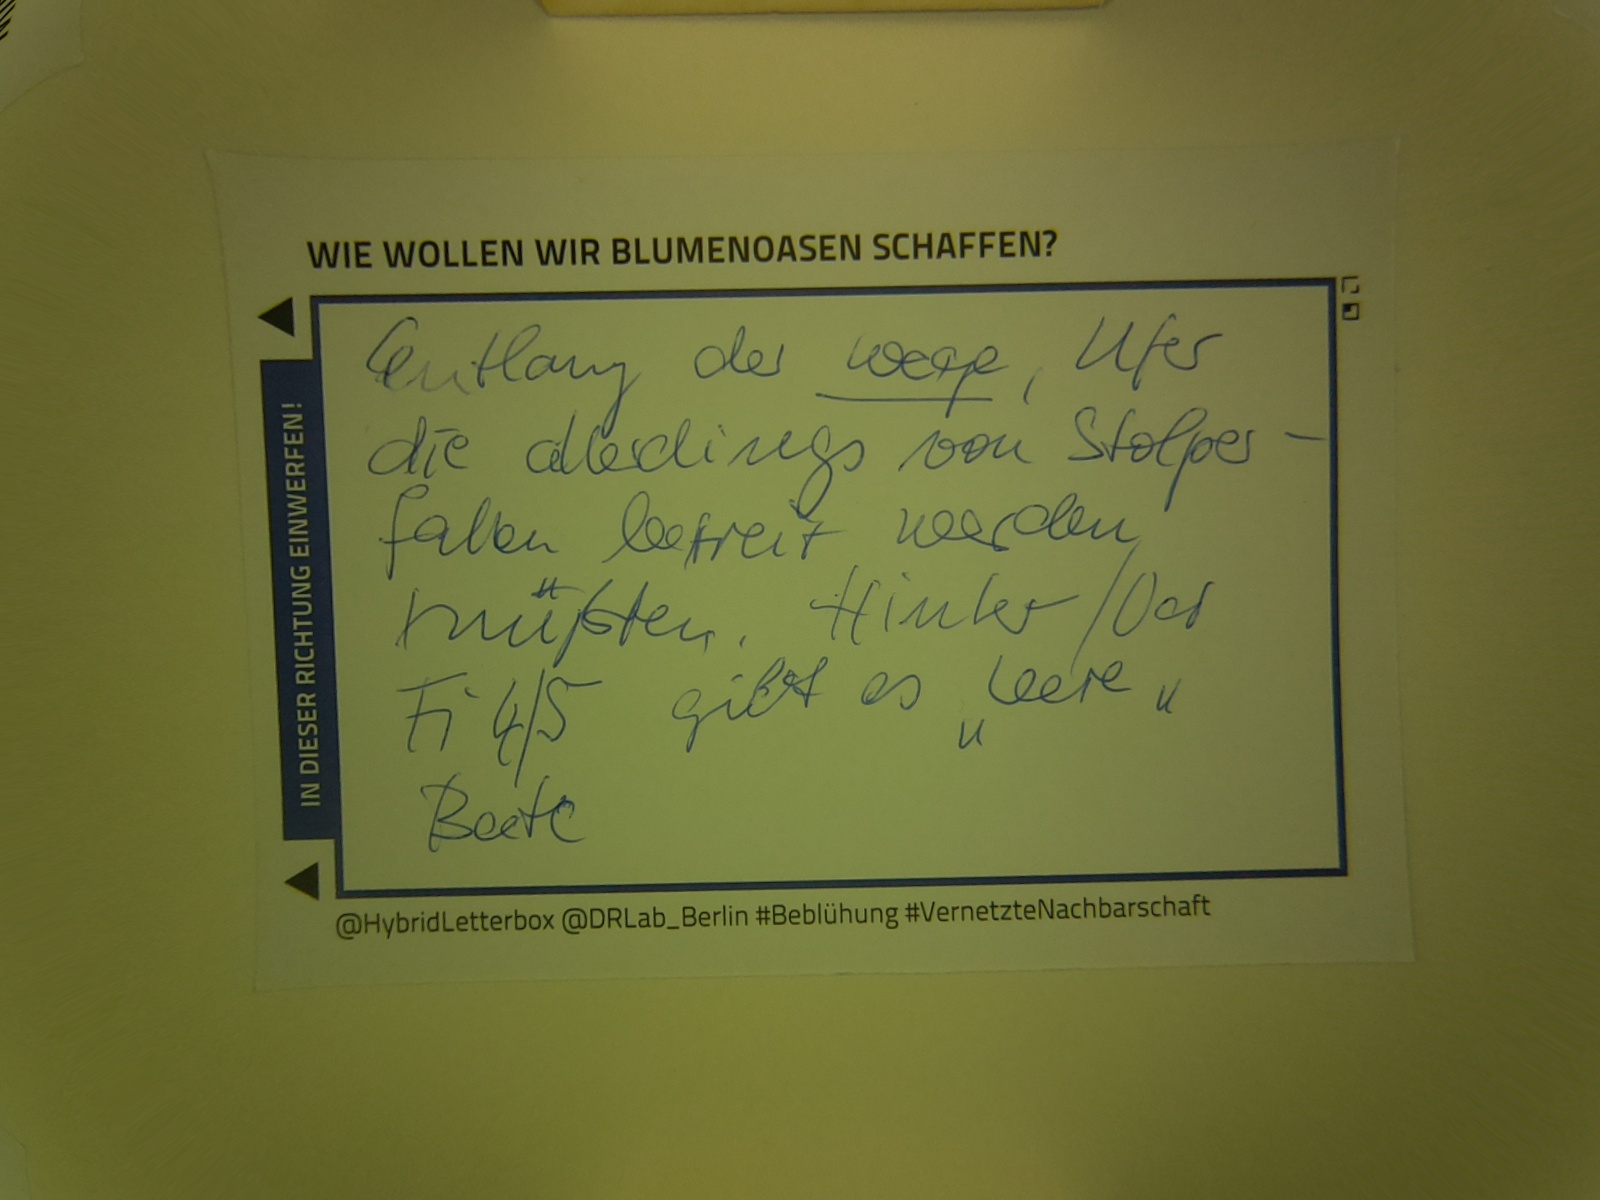 WIE WOLLEN WIR BLUMENOASEN SCHAFFEN?
IN DIESER RICHTUNG EINWERFEN!
Entlang der Wege, Ufer
die allerdings von Stolper-
fallen befreit werden
müßten. Hinter /
Fi 4/5 gibt es „leere"
Beete
@HybridLetterbox @DRLab_Berlin #Beblühung #VernetzteNachbarschaft